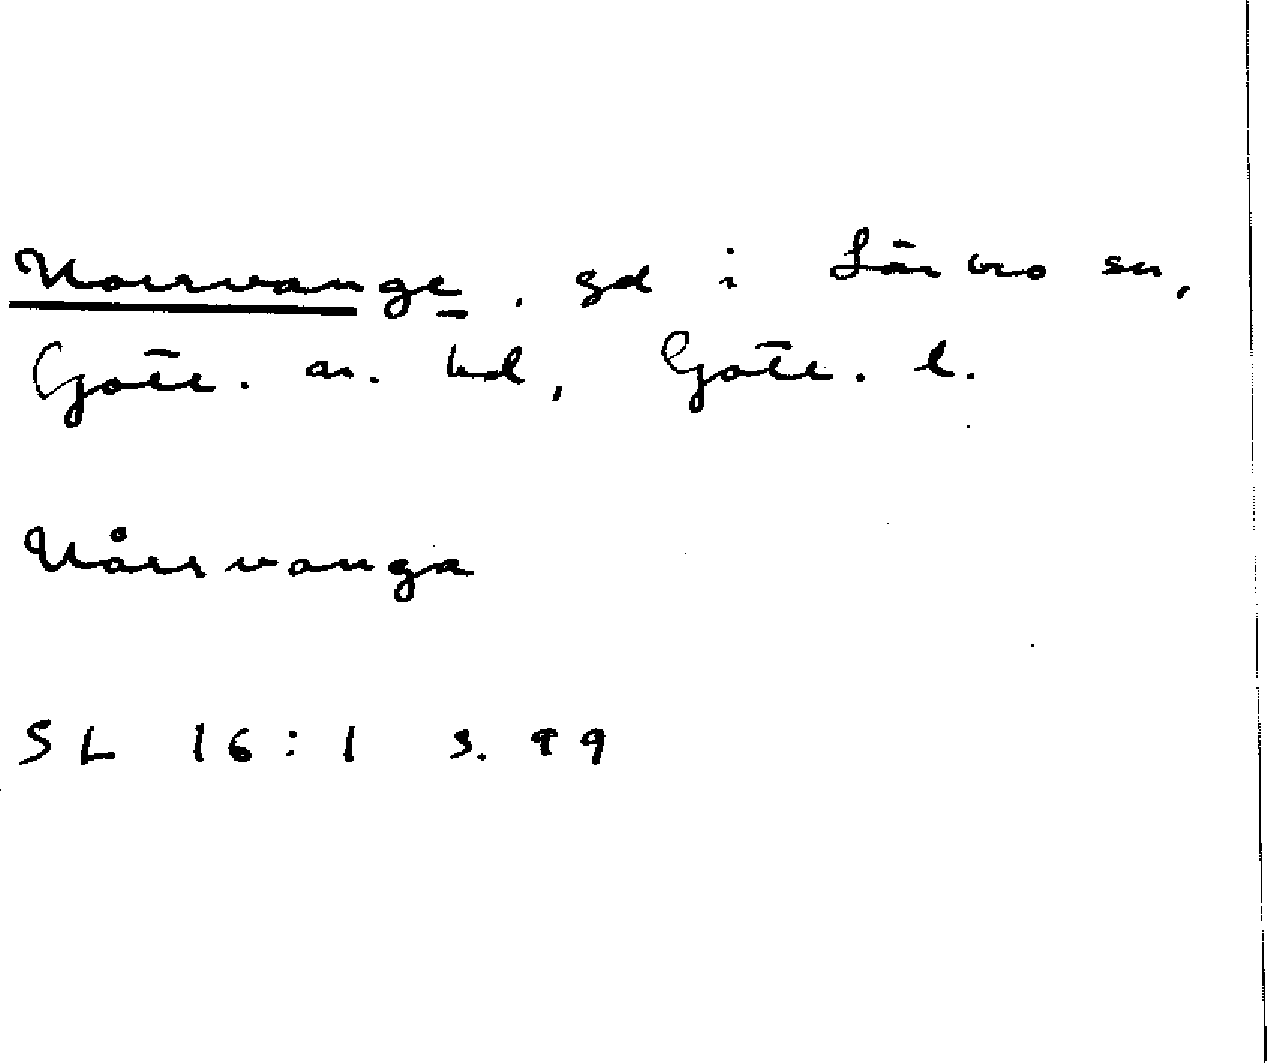 Norrvange, gd i Lärbro sn,
Gotl. n. hd, Gotl. l.
Nårrvanga
SL 16:1 s. 99